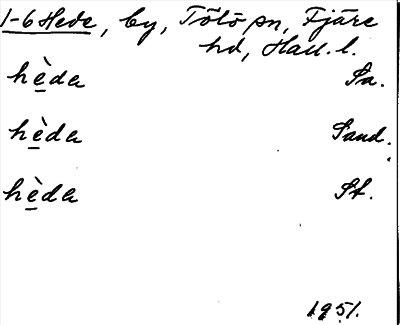 1-6 Hede, by, Tölö sn, Fjäre
hd, Hall. l.
hè̱da Sa.
hè̱da Sand.
hè̱da St.
1951.